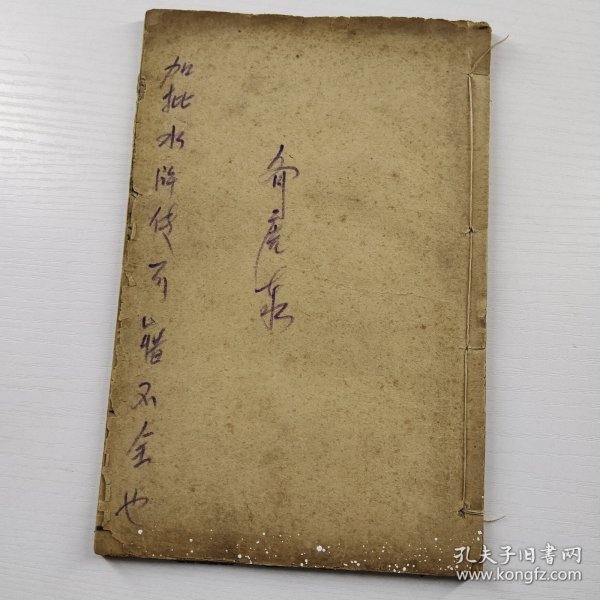 加批水浒传可惜不全也
孔夫子旧书网
www.kongfz.com